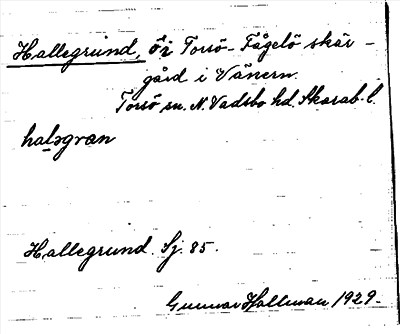 Hallegrund, ö i Torsö - Fågelö skär-
gård i Vänern.
Torsö sn. N. Vadsbo hd. Skarab. l.
halegran
Hallegrund. Sj. 85.
Gunnar Hallman 1929.